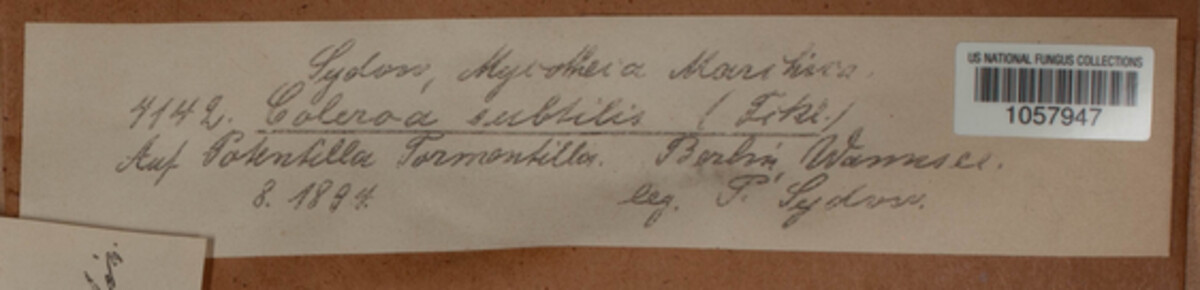 Sydow, Mycotheca Marchica.
4142. Coleroa subtilis (Fckl.)
Auf Potentilla Tormentilla. Berlin, Wannsee.
8. 1894. leg. P. Sydow.
US NATIONAL FUNGUS COLLECTIONS
1057947